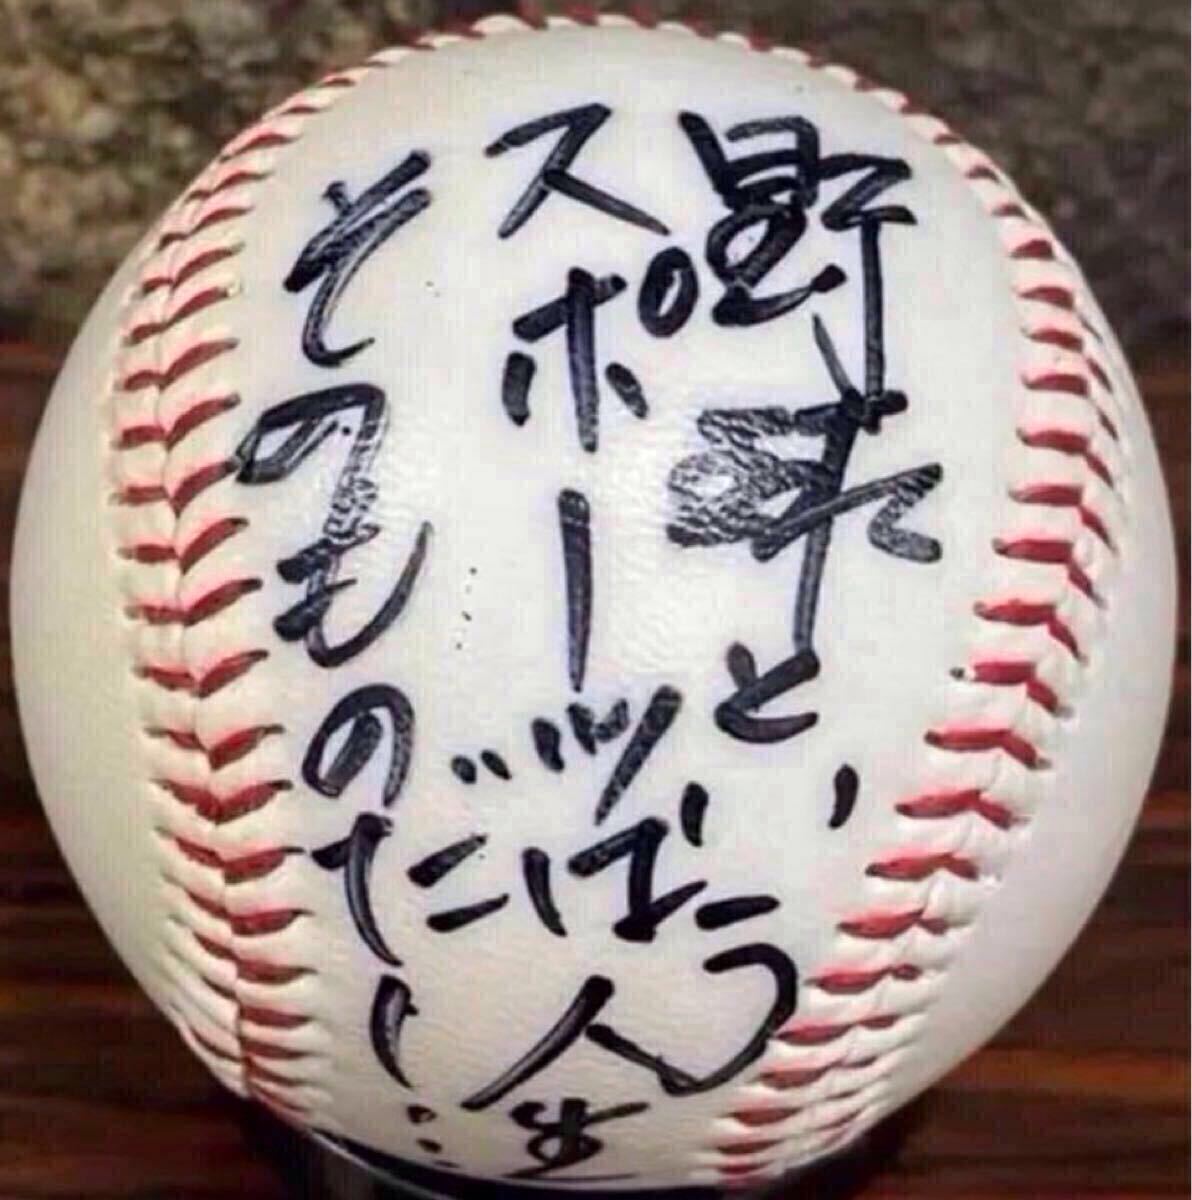 野球という
スポーツは人生
そのものだ！